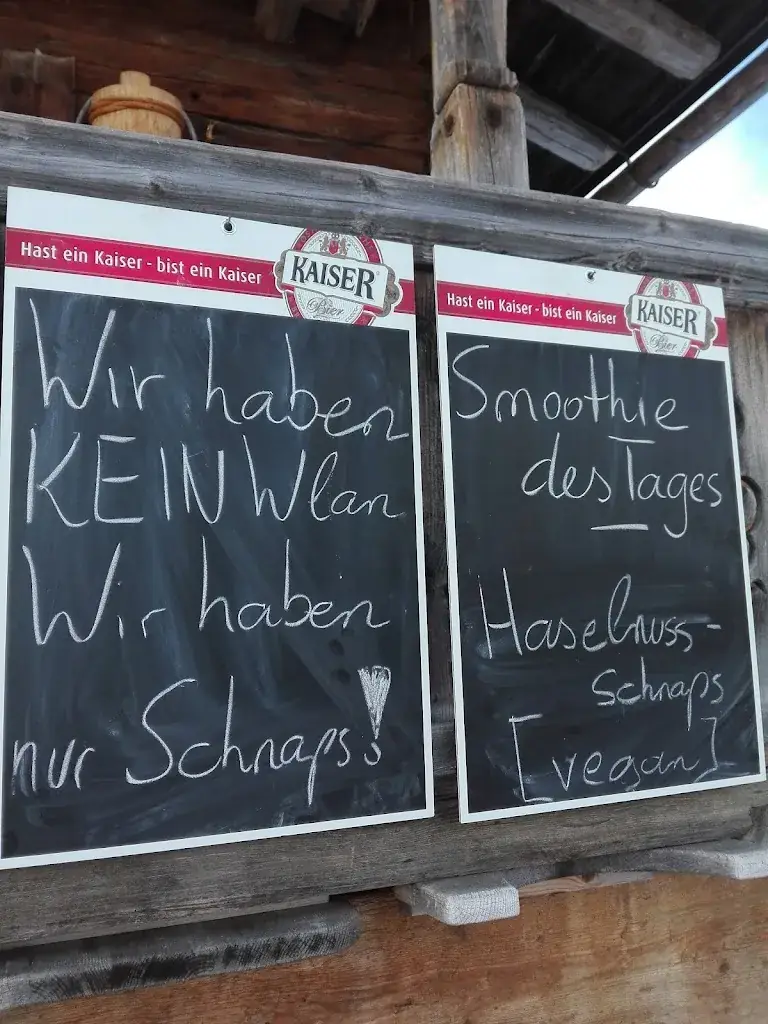 Hast ein Kaiser - bist ein Kaiser
KAISER
Bier
Wir haben
KEIN Wlan
Wir haben
nur Schnaps!
Hast ein Kaiser - bist ein Kaiser
KAISER
Bier
Smoothie
des Tages
Haselnuss-
schnaps
[vegan]